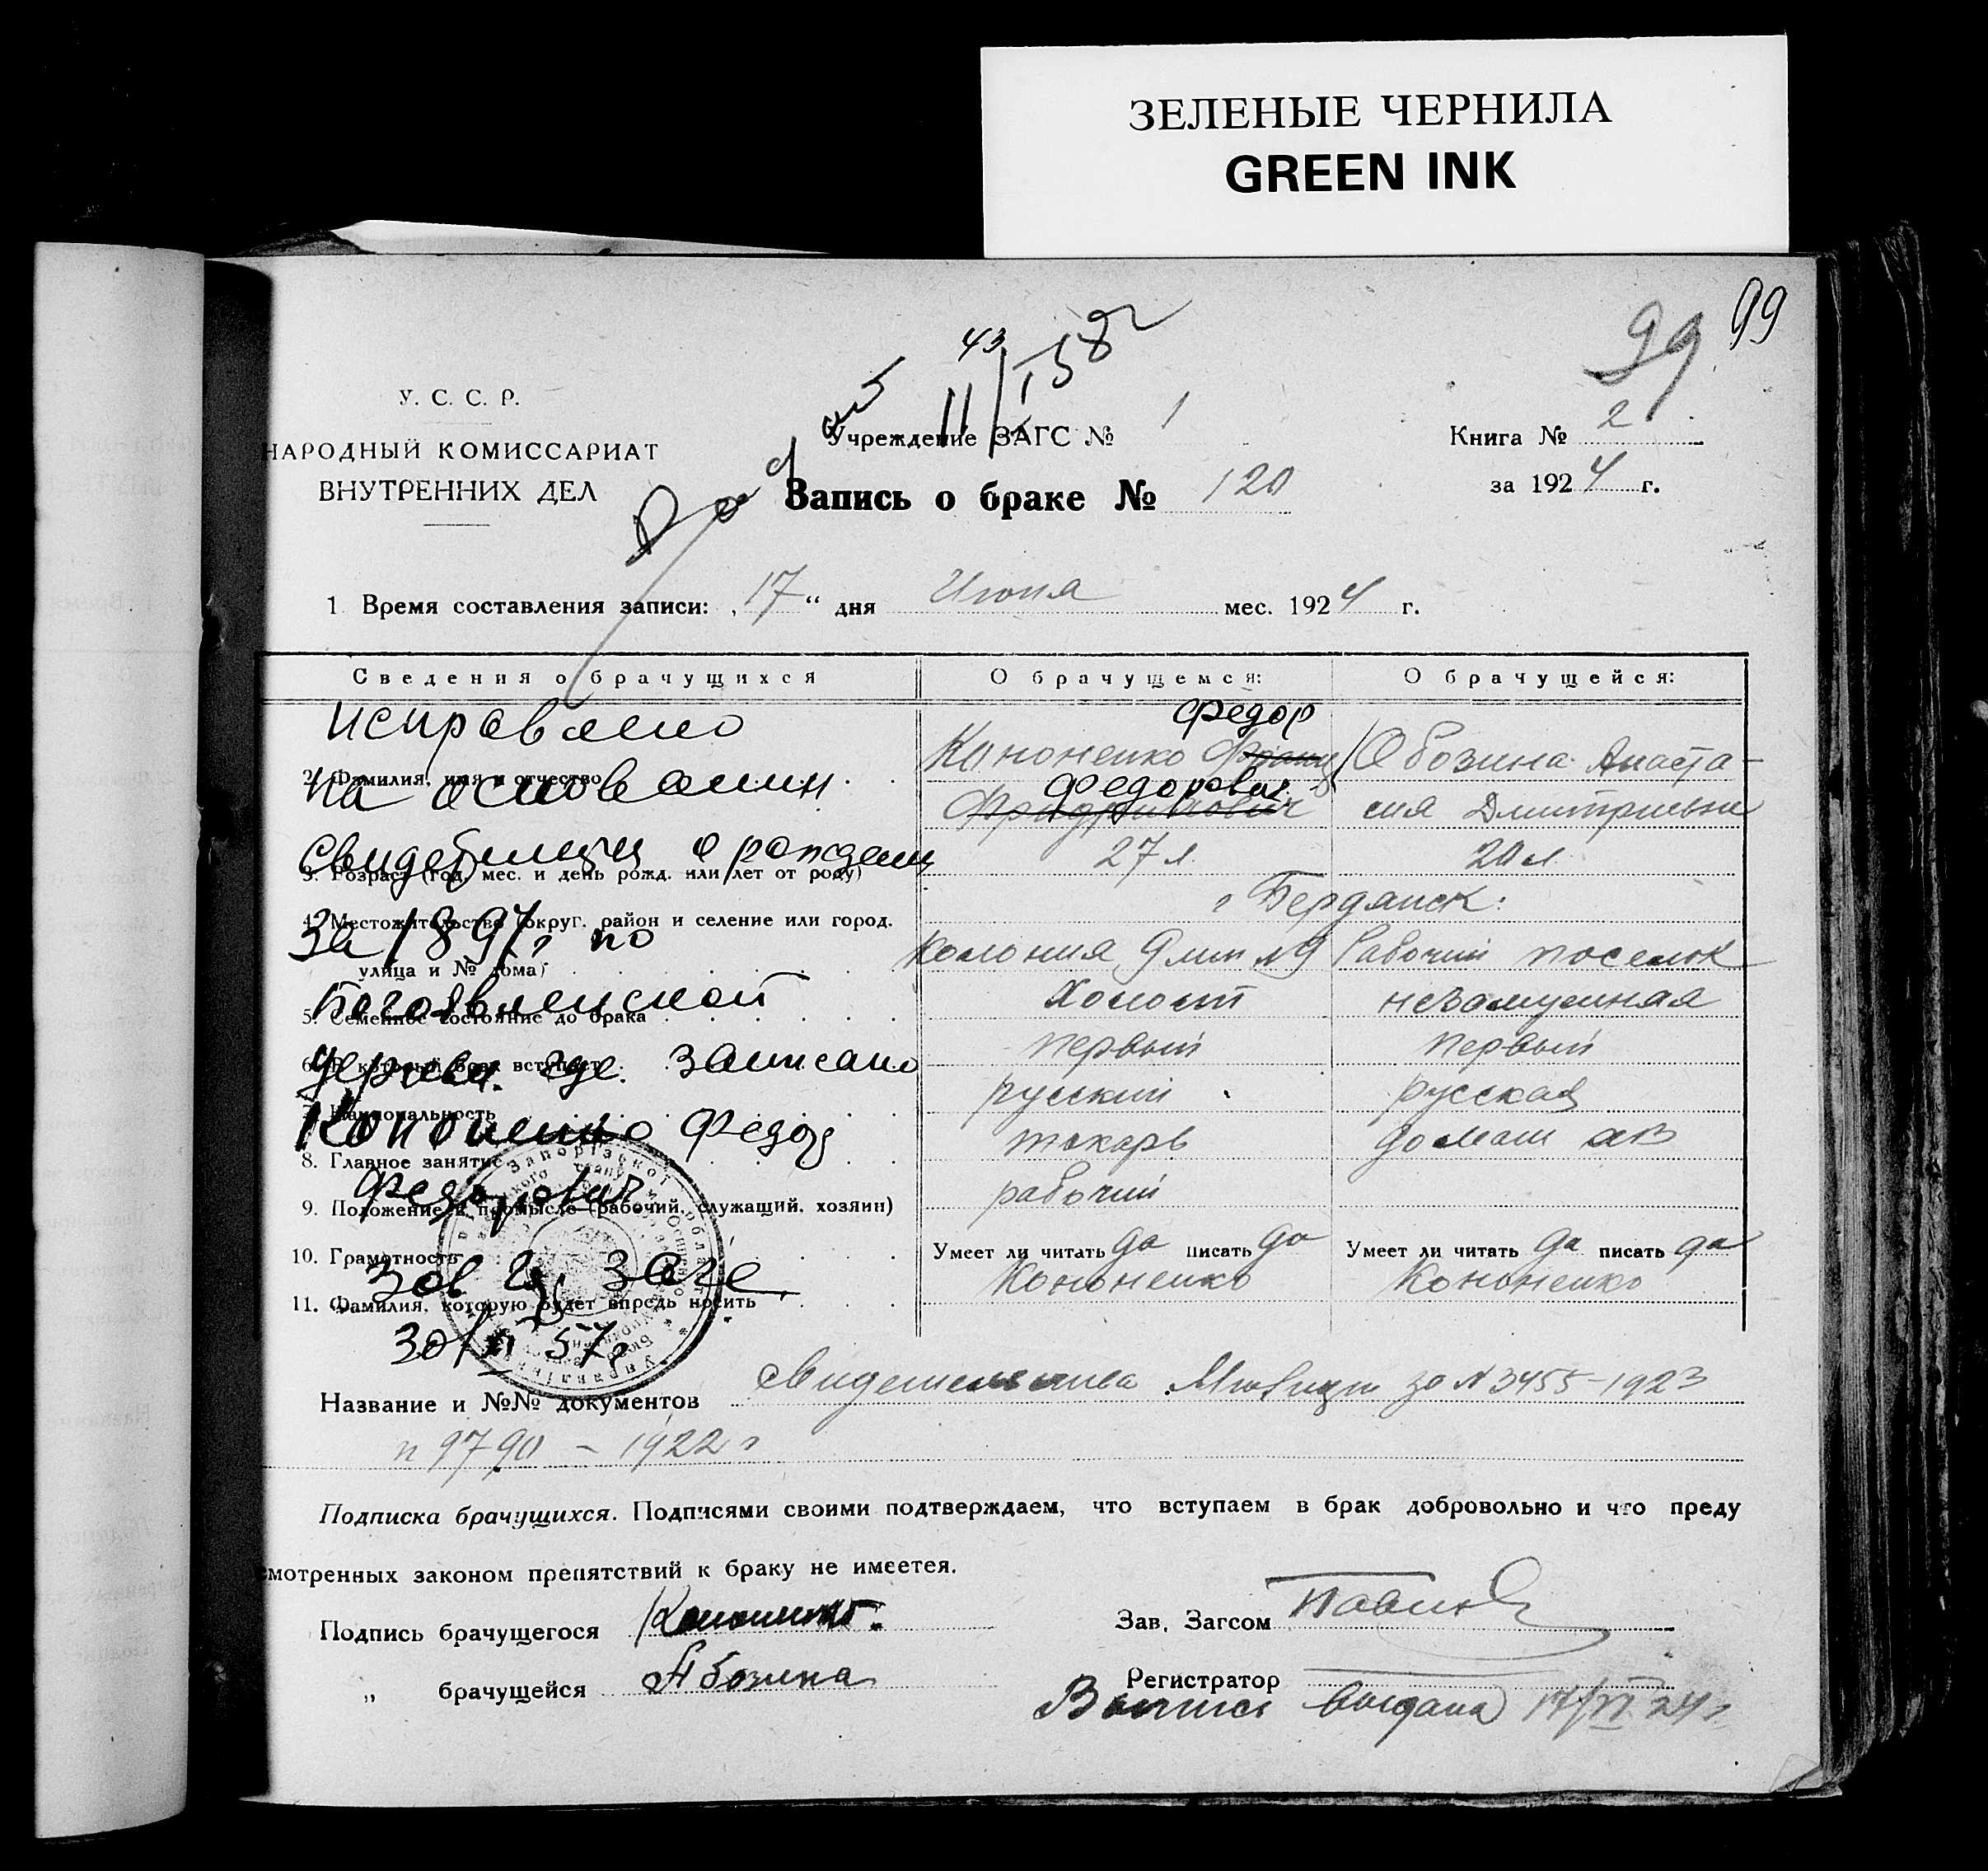 ЗЕЛЕНЫЕ ЧЕРНИЛА
GREEN INK
99
99
43
11/I 58 г
У. С. С. Р.
НАРОДНЫЙ КОМИССАРИАТ
ВНУТРЕННИХ ДЕЛ
Учреждение ЗАГС № 1
Книга № 2
за 1924 г.
Запись о браке № 120
1 Время составления записи: „17“ дня Июня мес. 1924 г.
Сведения о брачущихся
О брачущемся:
О брачущейся:
исправлено
на основании
свидетельства о рождении
за 1897 г по
Богоявленской
церкви. где. записано
Кононенко Федор
Федорович
Зав
30/XI 57 г
2. Фамилия, имя и отчество
Федор
Кононенко Франц
Федорович
Фридрихович
Обозина Анаста-
сия Дмитриевн
3. Возраст (год, мес. и день рожд. или лет от роду)
27 л.
20 л.
4. Местожительство (округ, район и селение или город,
улица и № дома)
г Бердянск.
Колония 9 лин N 9
Рабочий поселок
5. Семейное состояние до брака
Холост
незамужная
6. В который брак вступает
первый
первый
7. Национальность
русский
русская
8. Главное занятие
токарь
домаш хоз
9. Положение в промысле (рабочий, служащий, хозяин)
рабочий
10. Грамотность
Умеет ли читать да писать да
Умеет ли читать да писать да
11. Фамилия, которую будет впредь носить
Кононенко
Кононенко
Название и №№ документов свидетельства Милиции за N 3455-1923
и 9790 - 1922 г
Подписка брачущихся. Подписями своими подтверждаем, что вступаем в брак добровольно и что преду
смотренных законом препятствий к браку не имеется.
Подпись брачущегося Кононенко.
Зав. Загсом
„ брачущейся Абозина
Регистратор
Выпись выдана 17/VI 24 г